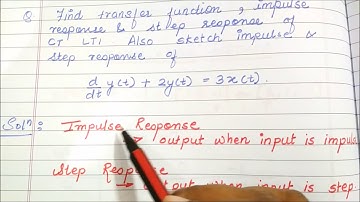 Q Find transfer function, impulse
response & step response of
CT LTI Also sketch impulse &
step response of
d/dt y(t) + 2y(t) = 3x(t).
Solⁿ: Impulse Response
→ output when input is impul
Step Response
→ output when input is step